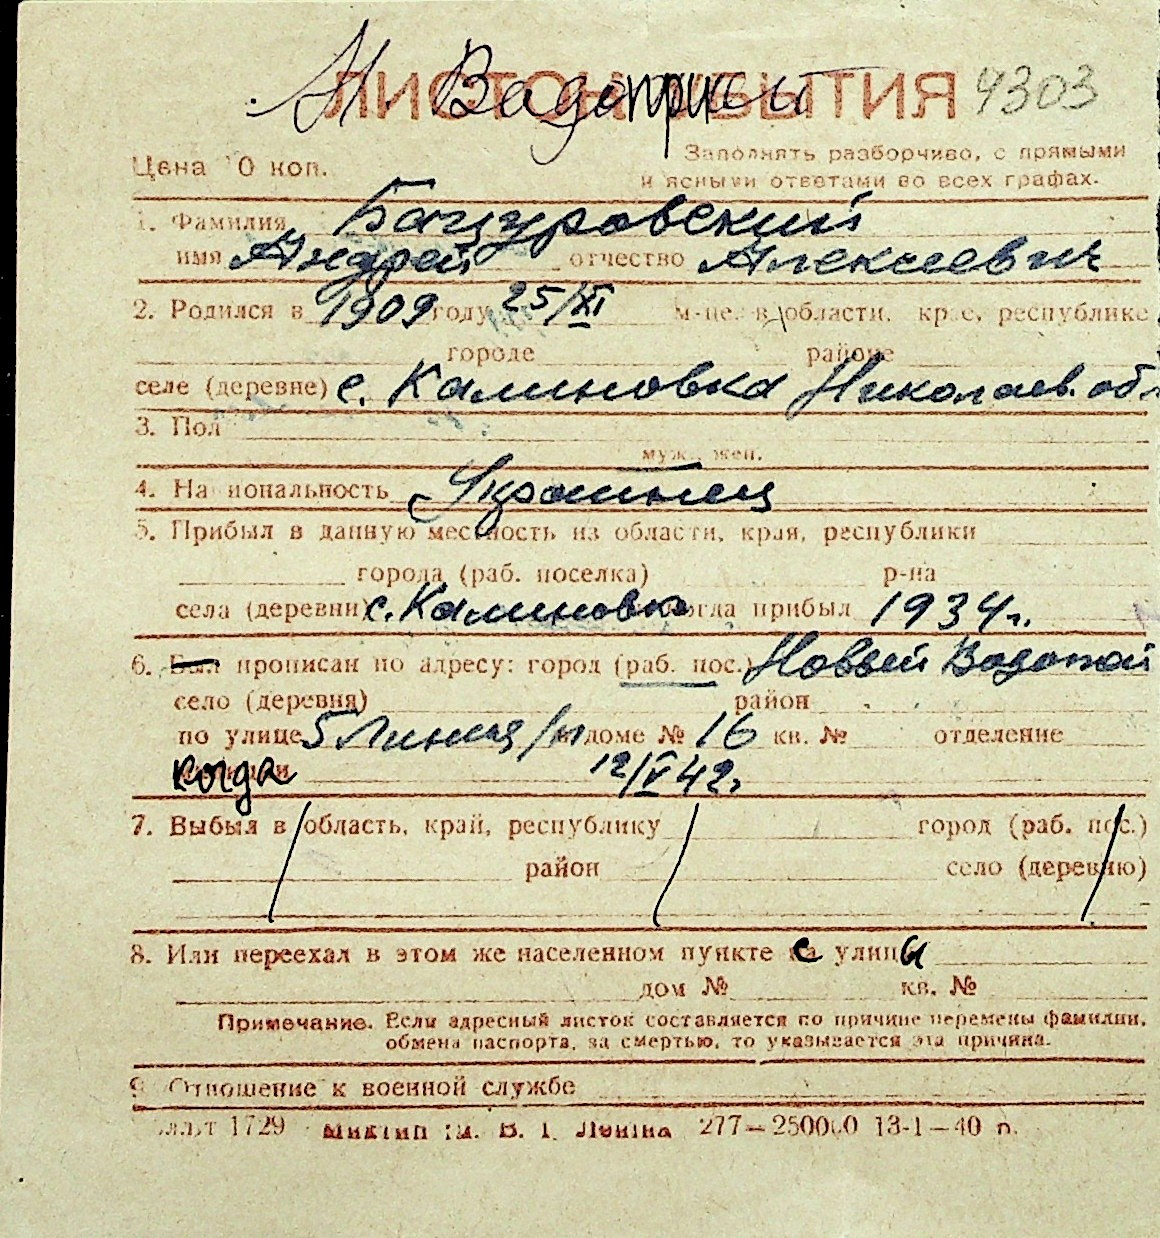 Н. Водопой
ЛИСТОК прибЫТИЯ 4303
Цена 10 коп. Заполнять разборчиво, с прямыми
и ясными ответами во всех графах.
1. Фамилия Бацуровский
имя Андрей отчество Алексеевич
2. Родился в 1909 году 25/XI м-це. в области, крае, республике
городе районе
селе (деревне) с. Калиновка Николаев. обл
3. Пол
муж., жен.
4. Национальность Украинец
5. Прибыл в данную местность из области, края, республики
города (раб. поселка) р-на
села (деревни) с. Калиновка когда прибыл 1934 г.
6. Был прописан по адресу: город (раб. пос.) Новый Водопой
село (деревня) район
по улице 5 Линия /н доме № 16 кв. № отделение
когда 12/V 42 г.
7. Выбыл в область, край, республику город (раб. пос.)
район село (деревню)
8. Или переехал в этом же населенном пункте с улицы
дом № кв. №
Примечание. Если адресный листок составляется по причине перемены фамилии,
обмена паспорта, за смертью, то указывается эта причина.
9 Отношение к военной службе
1729 277—250000 13-1—40 р.